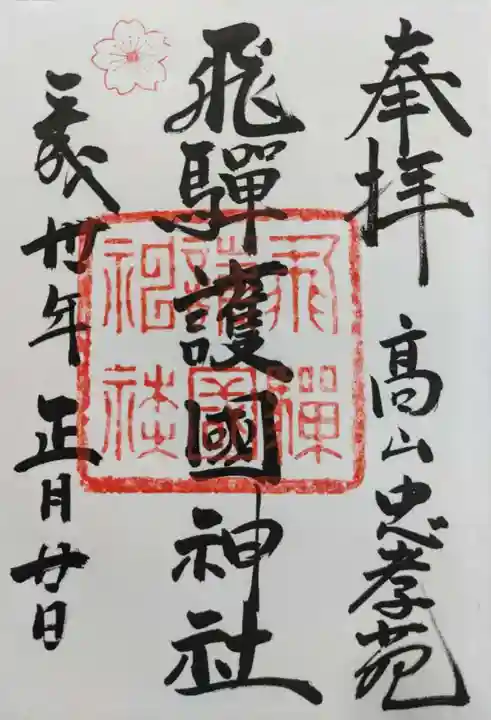 奉拝 高山忠孝苑
飛驒護國神社
平成卅年 正月廿日
飛驒護國神社